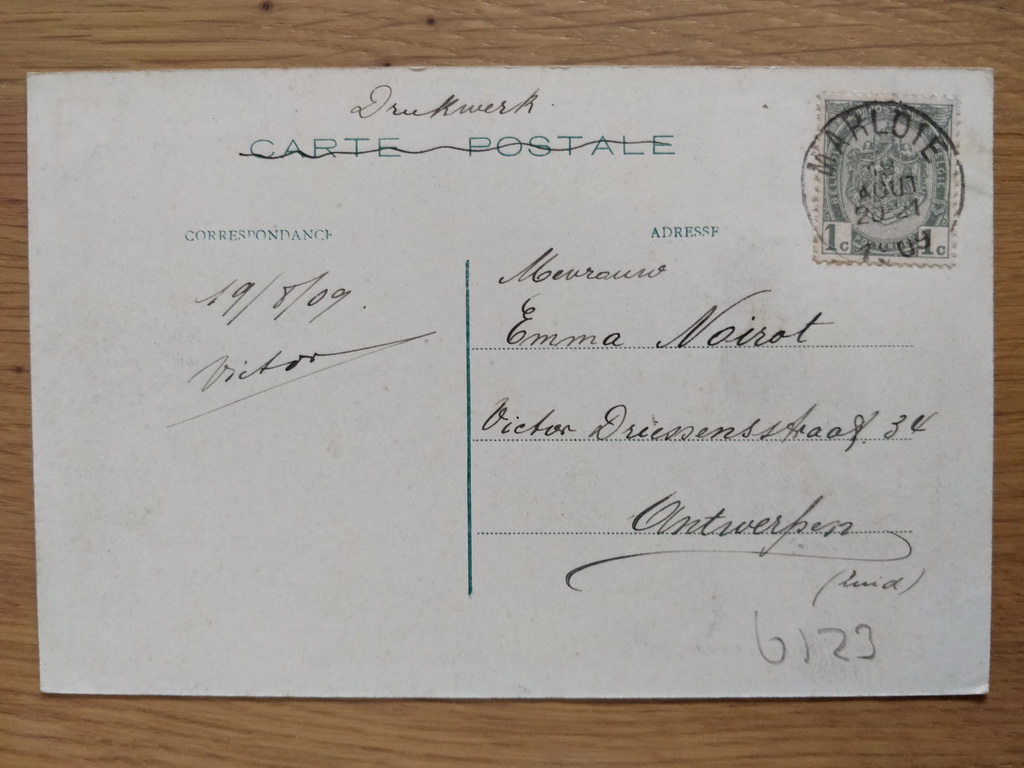 Drukwerk.
CARTE POSTALE
MARLOIE
AOUT
20-21
09
1c 1c
CORRESPONDANCE
ADRESSE
19/8/09.
Victor
Mevrouw
Emma Noirot
Victor Driessensstraat, 34
Antwerpen
(Zuid)
6123